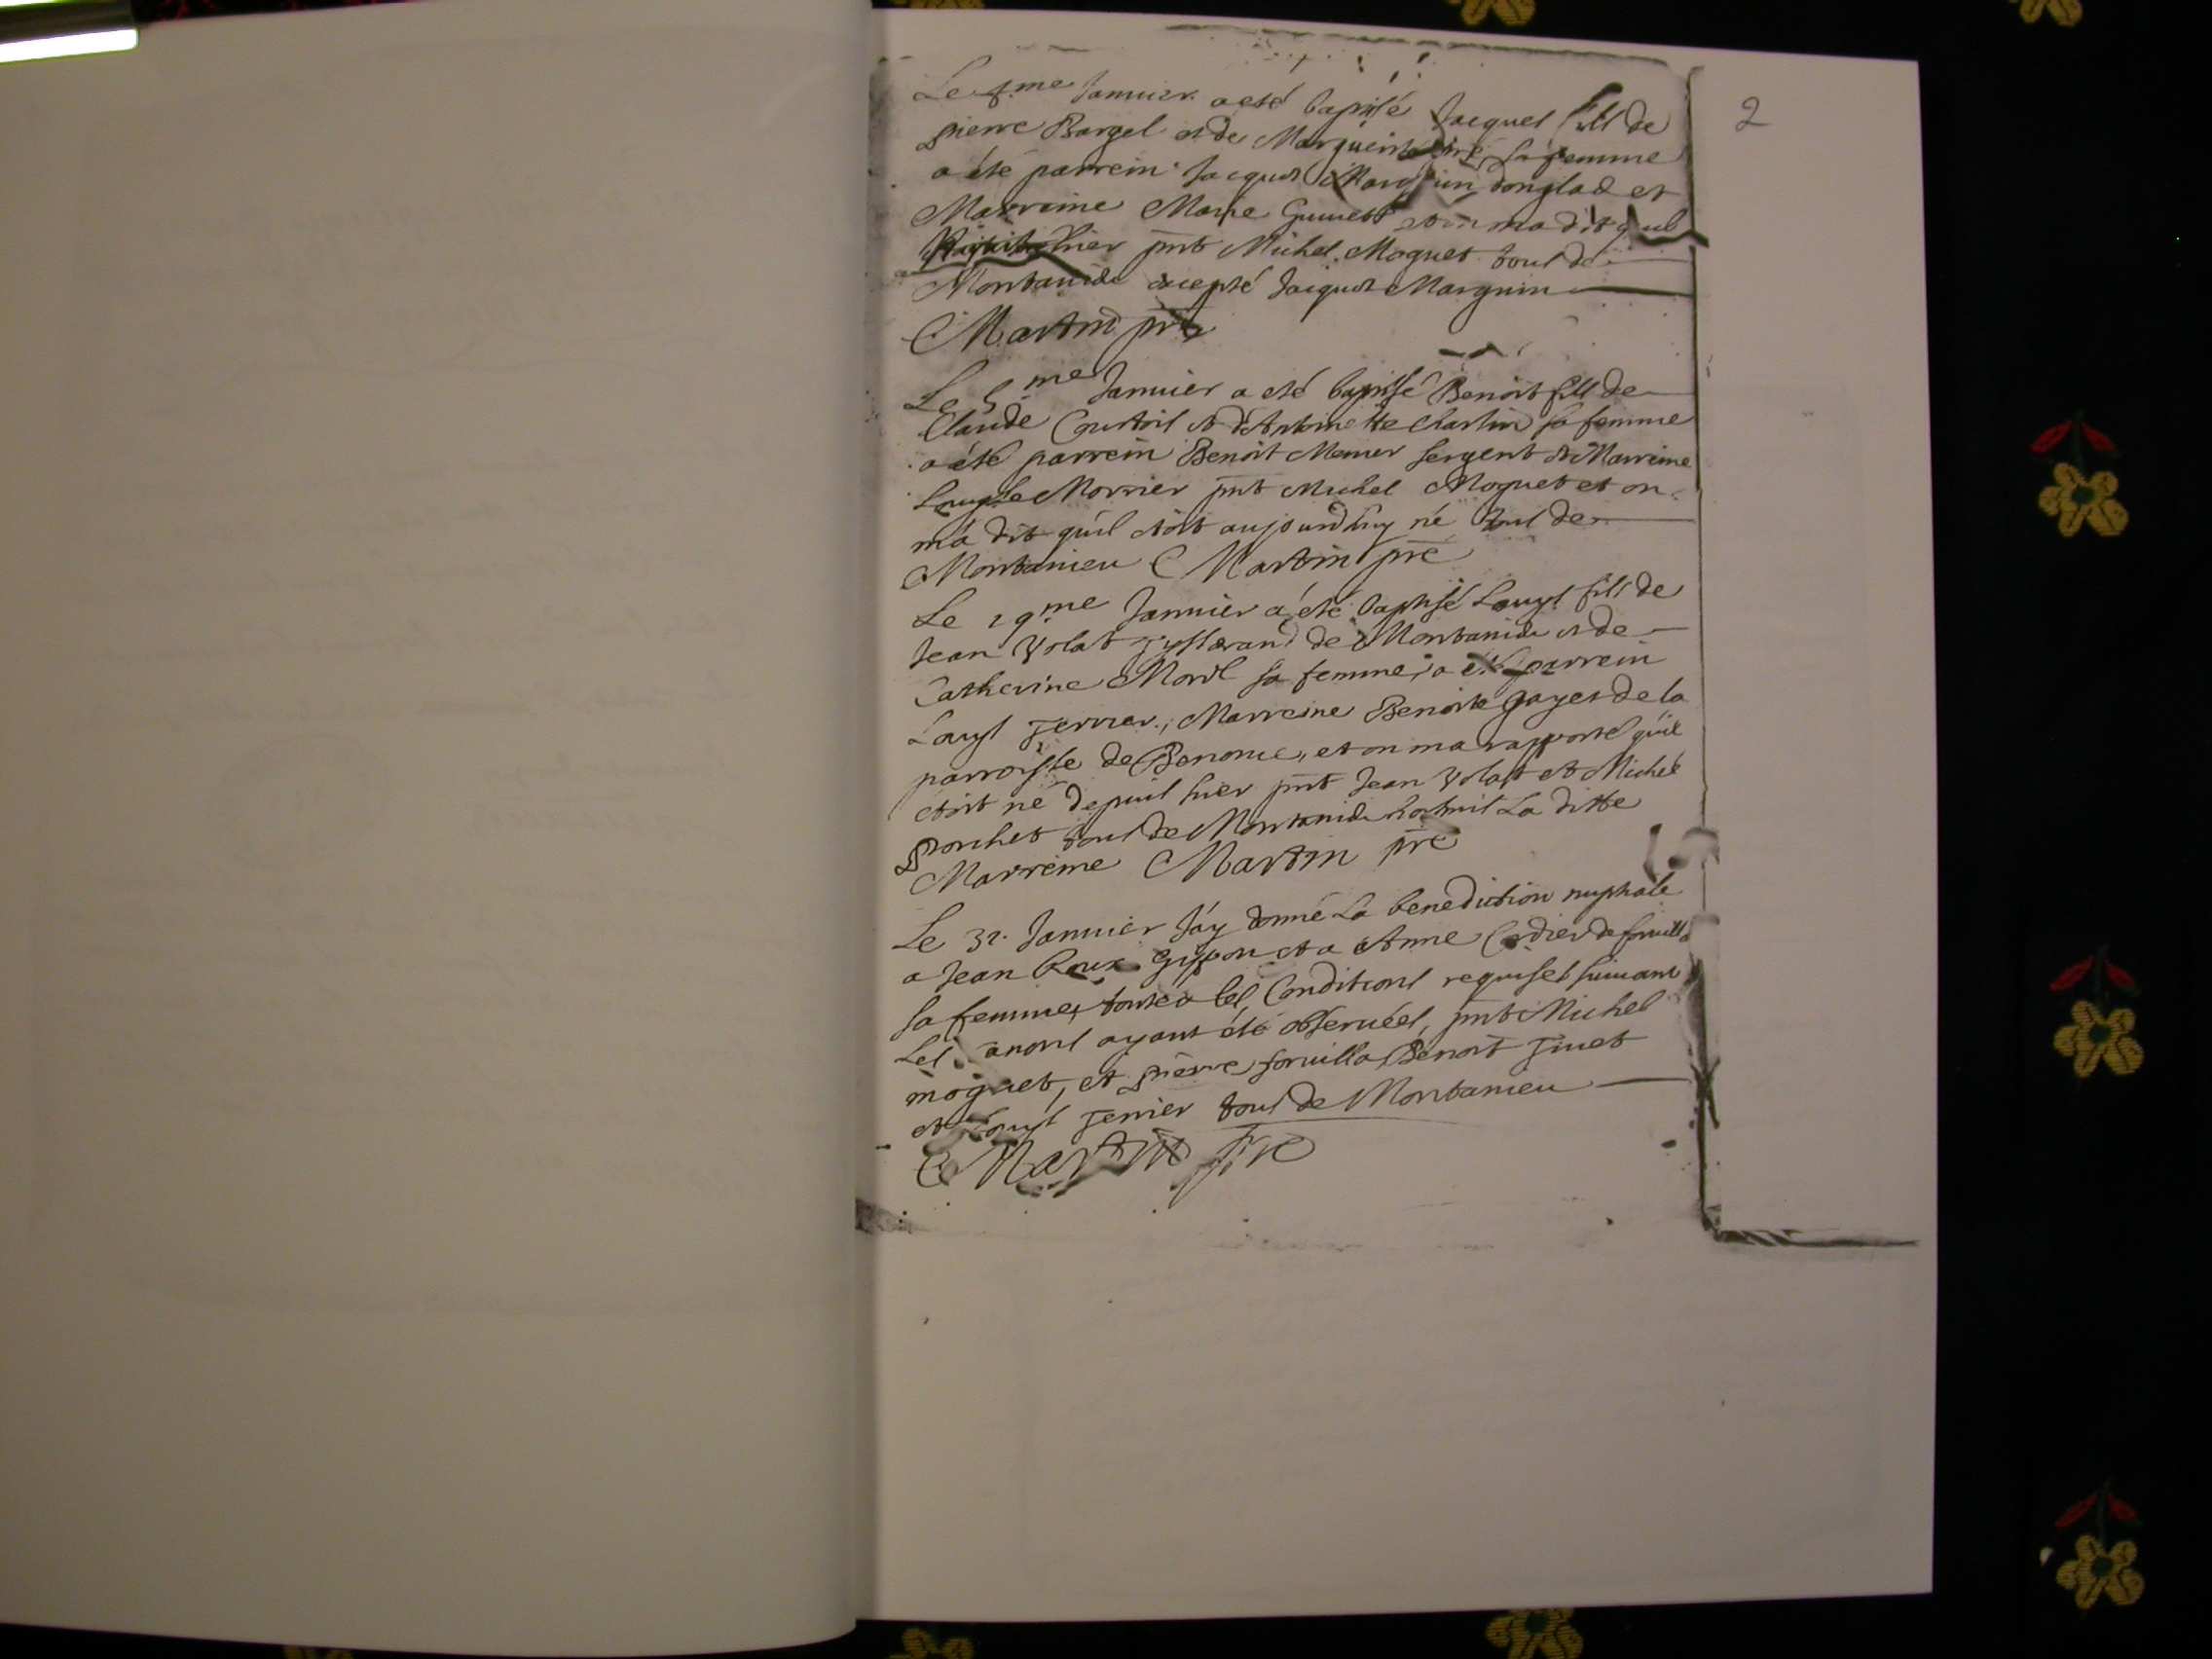 2
Le 4.me Januier a esté baptisé Jacques fils de
pierre Bargel et de Marguerite sa femme
a été parrein Jacques donglas et
Marreine Marie on ma dit quil
hier pnt Michel Moguet tous de
Montanieu Jacques Marguin
Martin pre
Le 5.me Januier a eté baptisé Benoit fils de
Claude Courtois et d'Antoinette Charlin sa femme
a été parrein Benoit sergent et Marreine
Louyse Morrier pnt Michel Moguet et on
m'a dit qu'il étoit aujourdhuy né tous de
Montanieu Martin pre
Le 19.me Januier a eté baptisé Louys fils de
Jean Volat Tysserand de Montanieu et de
Catherine Morel sa femme, a été parrein
Louys Terrier, Marreine Benoite gayet de la
parroisse de Benonce, et on ma rapporté qu'il
étoit né depuis hier pnt Jean Volat et Michel
Porchet tous de Montanieu la ditte
Marreine Martin pre
Le 31. Januier J'ay donné La benediction nuptiale
a Jean Roux et a Anne Cordier de
sa femme, toutes les Conditions requises suiuant
Les canons ayant été obseruées, pnt Michel
moguet, et pierre foruilla, Benoit
et Louys Terrier tous de Montanieu
Martin pre